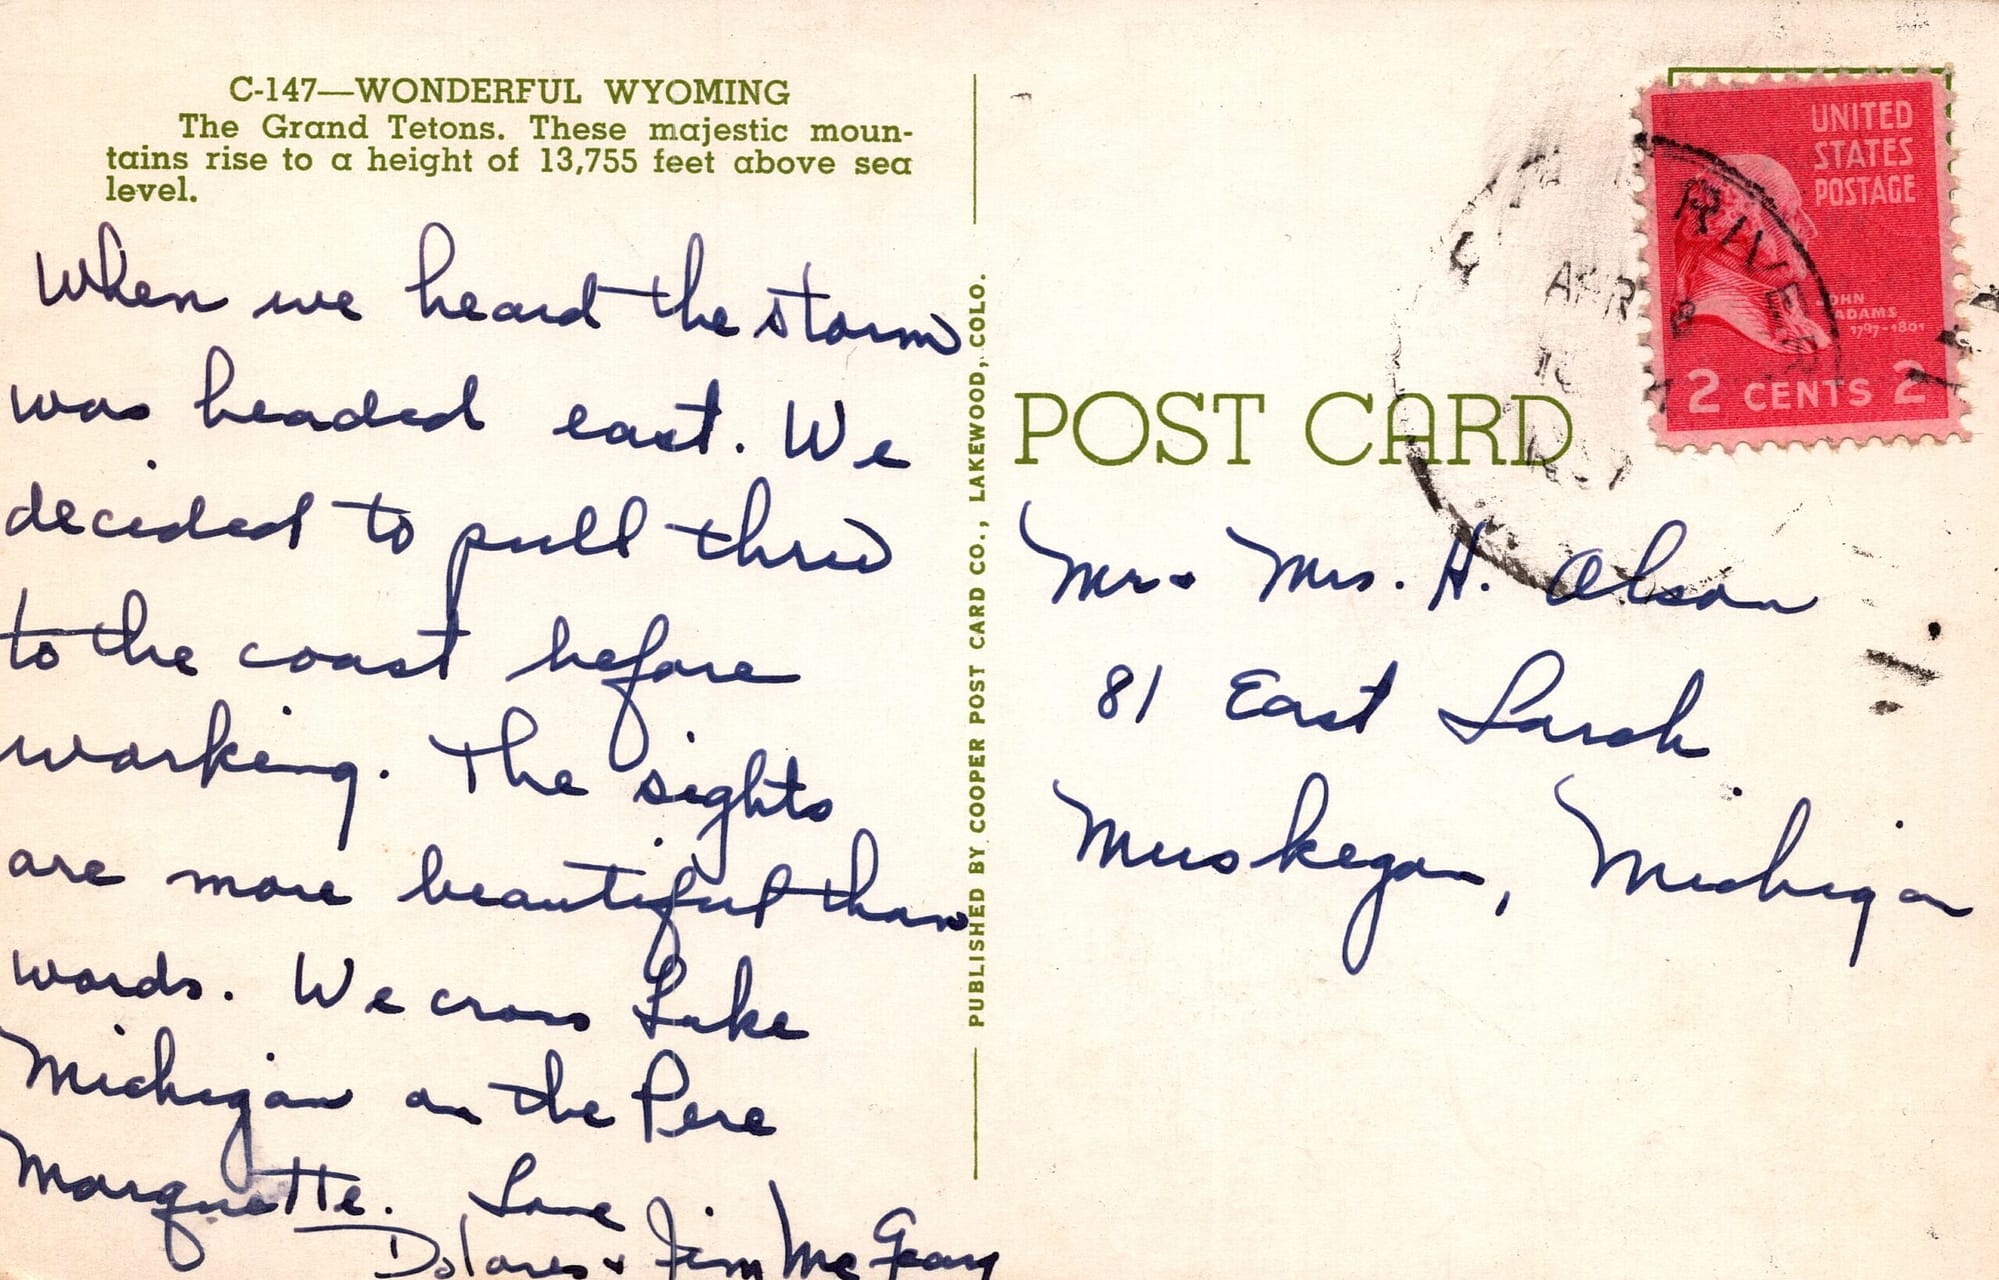 C-147—WONDERFUL WYOMING
The Grand Tetons. These majestic moun-
tains rise to a height of 13,755 feet above sea
level.
When we heard the storm
was headed east. We
decided to pull thru
to the coast before
working. The sights
are more beautiful than
words. We cross Lake
Michigan on the Pere
Marquette. Love
Dolores + Jim McGeary
PUBLISHED BY COOPER POST CARD CO., LAKEWOOD, COLO.
POST CARD
UNITED
STATES
POSTAGE
JOHN
ADAMS
1797-1801
2 CENTS 2
RIVER
APR 8
Mr + Mrs. H. Olson
81 East Larch
Muskegon, Michigan